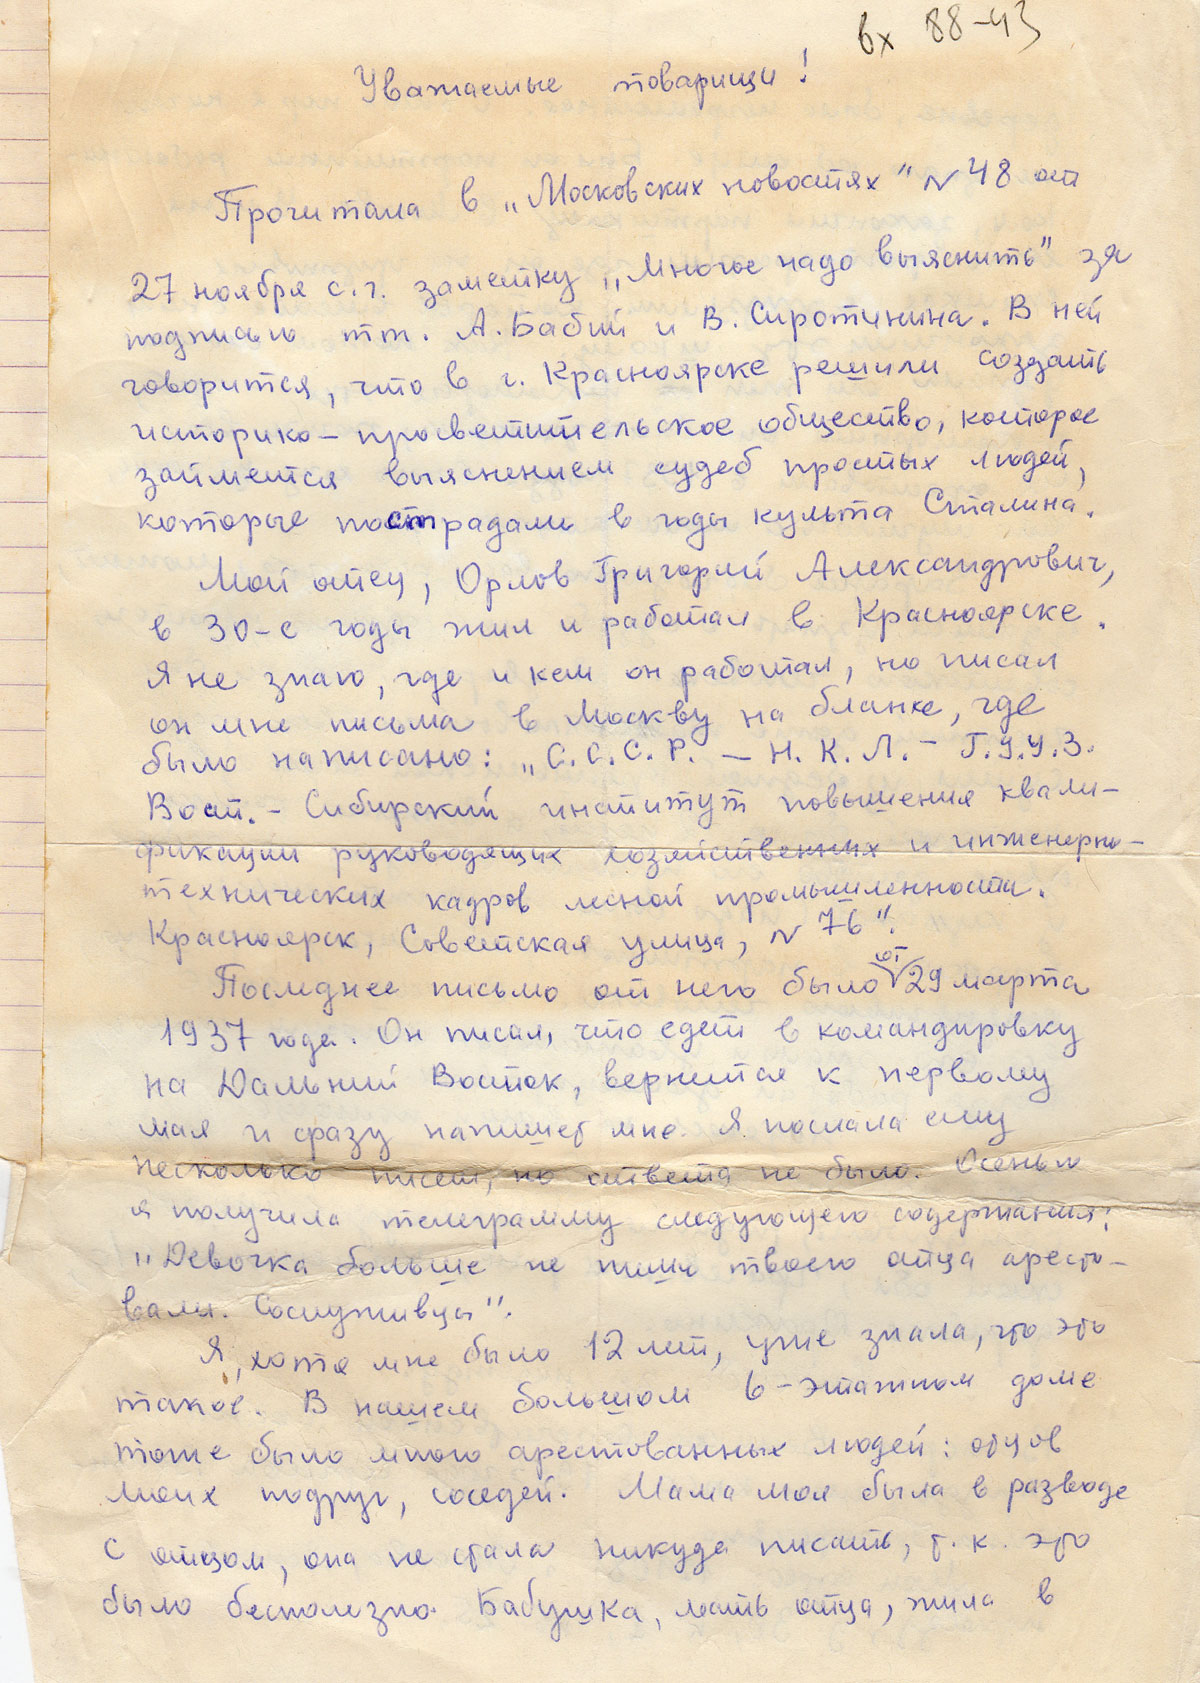 вх 88-43
Уважаемые товарищи!
Прочитала в „Московских новостях" N 48 от
27 ноября с.г. заметку „Многое надо выяснить" за
подписью тт. А. Бабий и В. Сиротинина. В ней
говорится, что в г. Красноярске решили создать
историко-просветительское общество, которое
займется выяснением судеб простых людей,
которые пострадали в годы культа Сталина.
Мой отец, Орлов Григорий Александрович,
в 30-е годы жил и работал в Красноярске.
Я не знаю, где и кем он работал, но писал
он мне письма в Москву на бланке, где
было написано: „С.С.С.Р. – Н.К.Л. – Г.У.У.З.
Вост.-Сибирский институт повышения квали-
фикации руководящих хозяйственных и инженерно-
технических кадров лесной промышленности.
Красноярск, Советская улица, N 76".
Последнее письмо от него было от 29 марта
1937 года. Он писал, что едет в командировку
на Дальний Восток, вернется к первому
мая и сразу напишет мне. Я послала ему
несколько писем, но ответа не было. Осенью
я получила телеграмму следующего содержания:
„Девочка больше не пиши твоего отца аресто-
вали. Сослуживцы".
Я, хотя мне было 12 лет, уже знала, что это
такое. В нашем большом 6-этажном доме
тоже было много арестованных людей: отцов
моих подруг, соседей. Мама моя была в разводе
с отцом, она не стала никуда писать, т.к. это
было бесполезно. Бабушка, мать отца, жила в